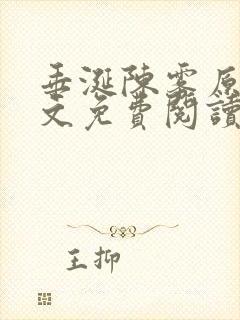 垂涎陳雾原
文免費閱讀
王抑